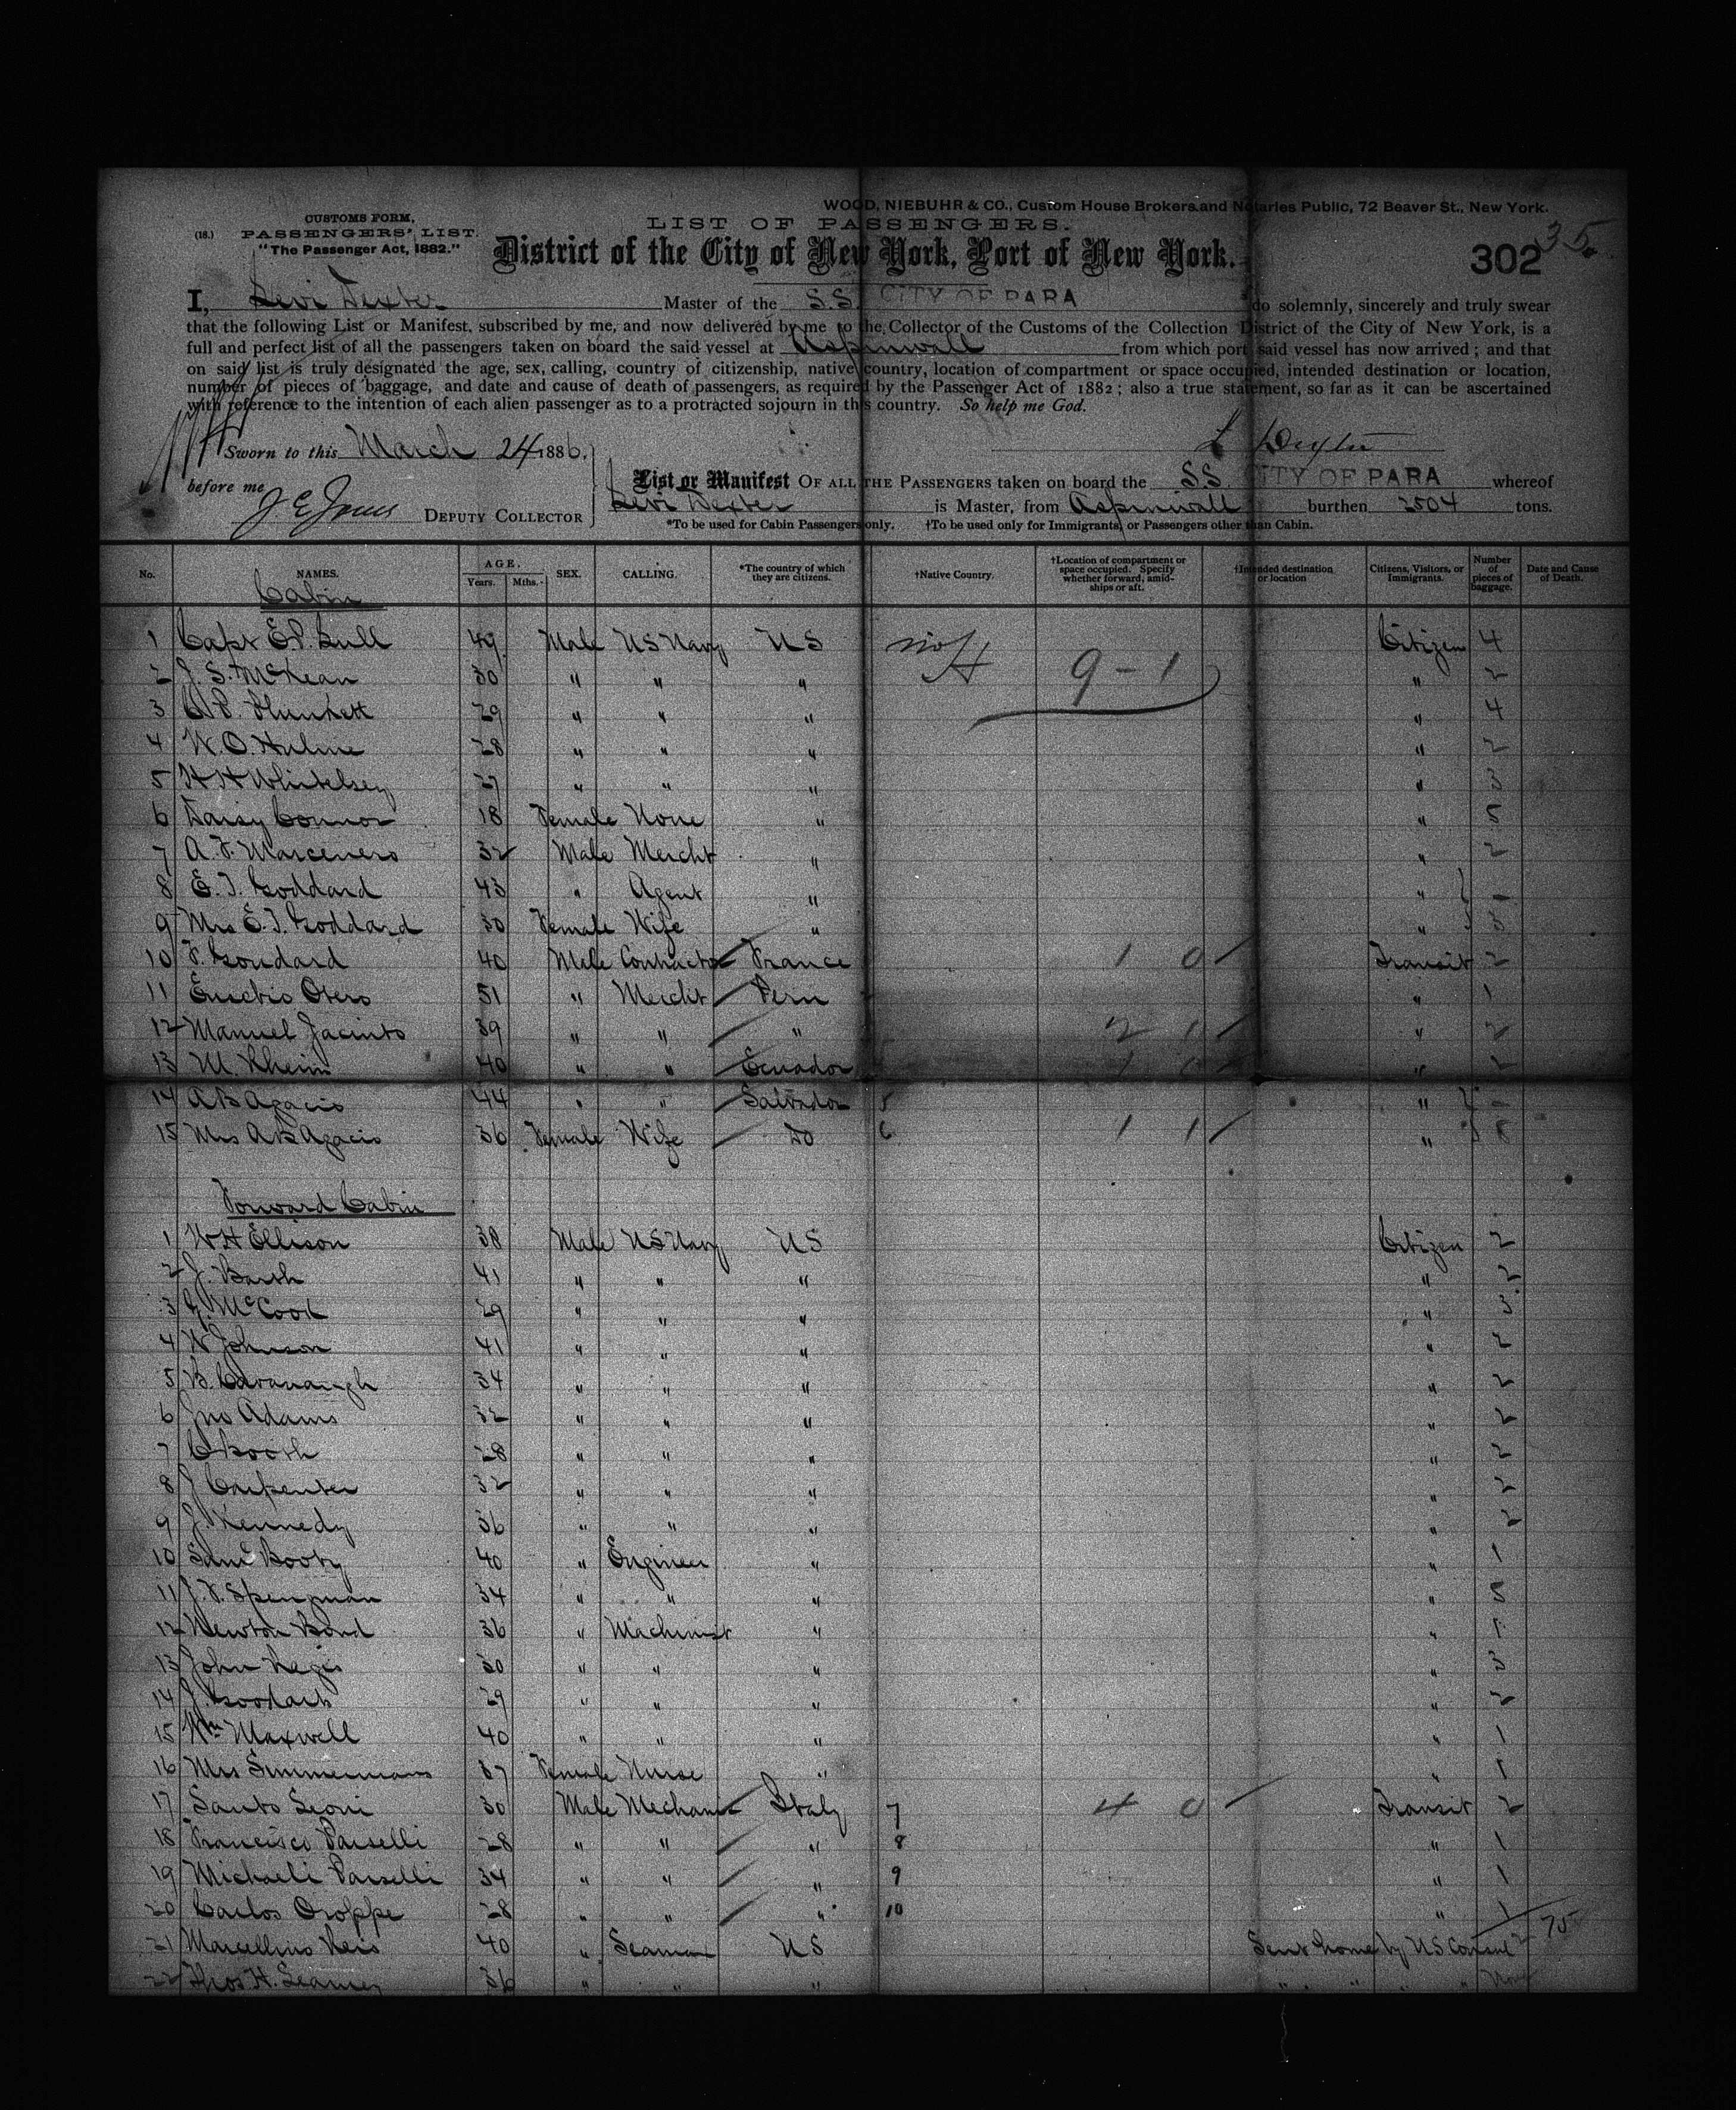 WOOD, NIEBUHR & CO., Custom House Brokers and Notaries Public, 72 Beaver St., New York.
CUSTOMS FORM,
(18.) PASSENGERS' LIST.
"The Passenger Act, 1882."
LIST OF PASSENGERS.
District of the City of New York, Port of New York.
302
35
I, Levi Dexter Master of the S.S. CITY OF PARA do solemnly, sincerely and truly swear
that the following List or Manifest, subscribed by me, and now delivered by me to the Collector of the Customs of the Collection District of the City of New York, is a
full and perfect list of all the passengers taken on board the said vessel at Aspinwall from which port said vessel has now arrived; and that
on said list is truly designated the age, sex, calling, country of citizenship, native country, location of compartment or space occupied, intended destination or location,
number of pieces of baggage, and date and cause of death of passengers, as required by the Passenger Act of 1882; also a true statement, so far as it can be ascertained
with reference to the intention of each alien passenger as to a protracted sojourn in this country. So help me God.
Sworn to this March 24 1886.
L Dexter
before me
DEPUTY COLLECTOR
List or Manifest OF ALL THE PASSENGERS taken on board the S.S. CITY OF PARA whereof
Levi Dexter is Master, from Aspinwall burthen 2504 tons.
*To be used for Cabin Passengers only. †To be used only for Immigrants, or Passengers other than Cabin.
No. NAMES. AGE. Years. Mths. SEX. CALLING. *The country of which they are citizens. †Native Country. †Location of compartment or space occupied. Specify whether forward, amidships or aft. †Intended destination or location Citizens, Visitors, or Immigrants. Number of pieces of baggage. Date and Cause of Death.
Cabin
1 Capt E.P. Lull 49 Male US Navy US 9-1 Citizen 4
2 J. S. McKean 30 " " " " 2
3 Plunkett 29 " " " " 4
4 W. O. Hulme 28 " " " " 2
5 H H Whittlesey 27 " " " " 3
6 Daisy Connor 18 Female None " " 5
7 A. F. Marceners 32 Male Mercht " " 2
8 E. T. Goddard 43 " Agent " " -
9 Mrs E. T. Goddard 30 Female Wife " " 3
10 F. Goudard 40 Male Contractor France 1 0 Transit 2
11 Otero 51 " Mercht Peru " 1
12 Manuel Jacinto 39 " " " 2 1 " 2
13 M. Rheim 40 " " Ecuador 1 0 " 2
14 A B Agacio 44 " " Salvador 5 " -
15 Mrs A B Agacio 36 Female Wife Do 6 1 1 " 8
Forward Cabin
1 W H Ellison 38 Male US Navy US Citizen 2
2 J. Barth 41 " " " " 2
3 McCook 29 " " " " 3
4 W Johnson 41 " " " " 2
5 B. Cavanaugh 34 " " " " 2
6 Jno Adams 32 " " " " 2
7 C Booth 28 " " " " 2
8 J Carpenter 32 " " " " 2
9 J. Kennedy 36 " " " " 2
10 Saml Booty 40 " Engineer " " 1
11 J. F. Spenzman 34 " " " " 5
12 Newton Bond 36 " Machinist " " 1
13 John Regis 30 " " " " 3
14 J. 29 " " " " 2
15 Wm Maxwell 40 " " " " 1
16 Mrs Simmermans 37 Female Nurse " " 1
17 Santo Leoni 30 Male Mechanic Italy 7 4 0 Transit 2
18 Francisco Parselli 28 " " " 8 " 1
19 Michaeli Parselli 34 " " " 9 " 1
20 Carlos Oroppe 28 " " " 10 " 1
75
21 Marcellino Reis 40 " Seaman US Sent home by US Consul 2
22 Thos H. 36 " " " " " " " None